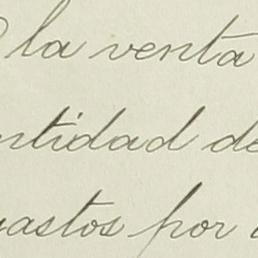 la venta
ntidad de
gastos por